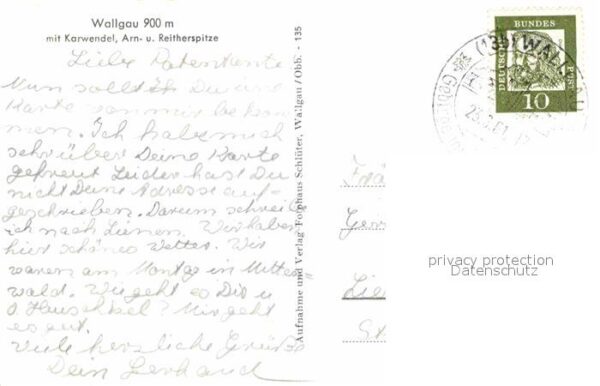 Wallgau 900 m
mit Karwendel, Arn- u. Reitherspitze
Liebe Patentante
Nun sollst Du eine
Karte von mir bekom
men. Ich habe mich
sehr über Deine Karte
gefreut Leider hast Du
nicht Deine Adresse auf-
geschrieben. Darum schreibe
ich nach Lünen. Wir haben
hier schönes Wetter. Wir
waren am Montag in Mitten
wald. Wie geht es Dir u
O. ? Mir geht
es gut.
Viele herzliche Grüße
Dein Gerhard
Aufnahme und Verlag Fotohaus Schlüter, Wallgau/Obb. - 135
DEUTSCHE BUNDES POST
10
(13b) WALLGAU
privacy protection
Datenschutz